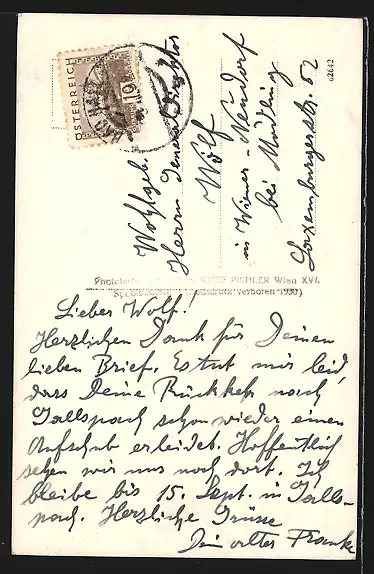 ÖSTERREICH
10
o2642
Wohlgeb.
Herrn Generaldirektor
Wolf
in Wiener-Neudorf
bei Mödling
Laxenburgerstr. 52
JOSEF PICHLER Wien XVI.
(Nachdruck verboten 1930)
Lieber Wolf!
Herzlichen Dank für Deinen
lieben Brief. Es tut mir leid,
dass Deine Rückkehr nach
Gallspach schon wieder einen
Aufschub erleidet. Hoffentlich
sehen wir uns noch dort. Ich
bleibe bis 15. Sept. in Galls-
pach. Herzliche Grüsse
Dein alter Franke